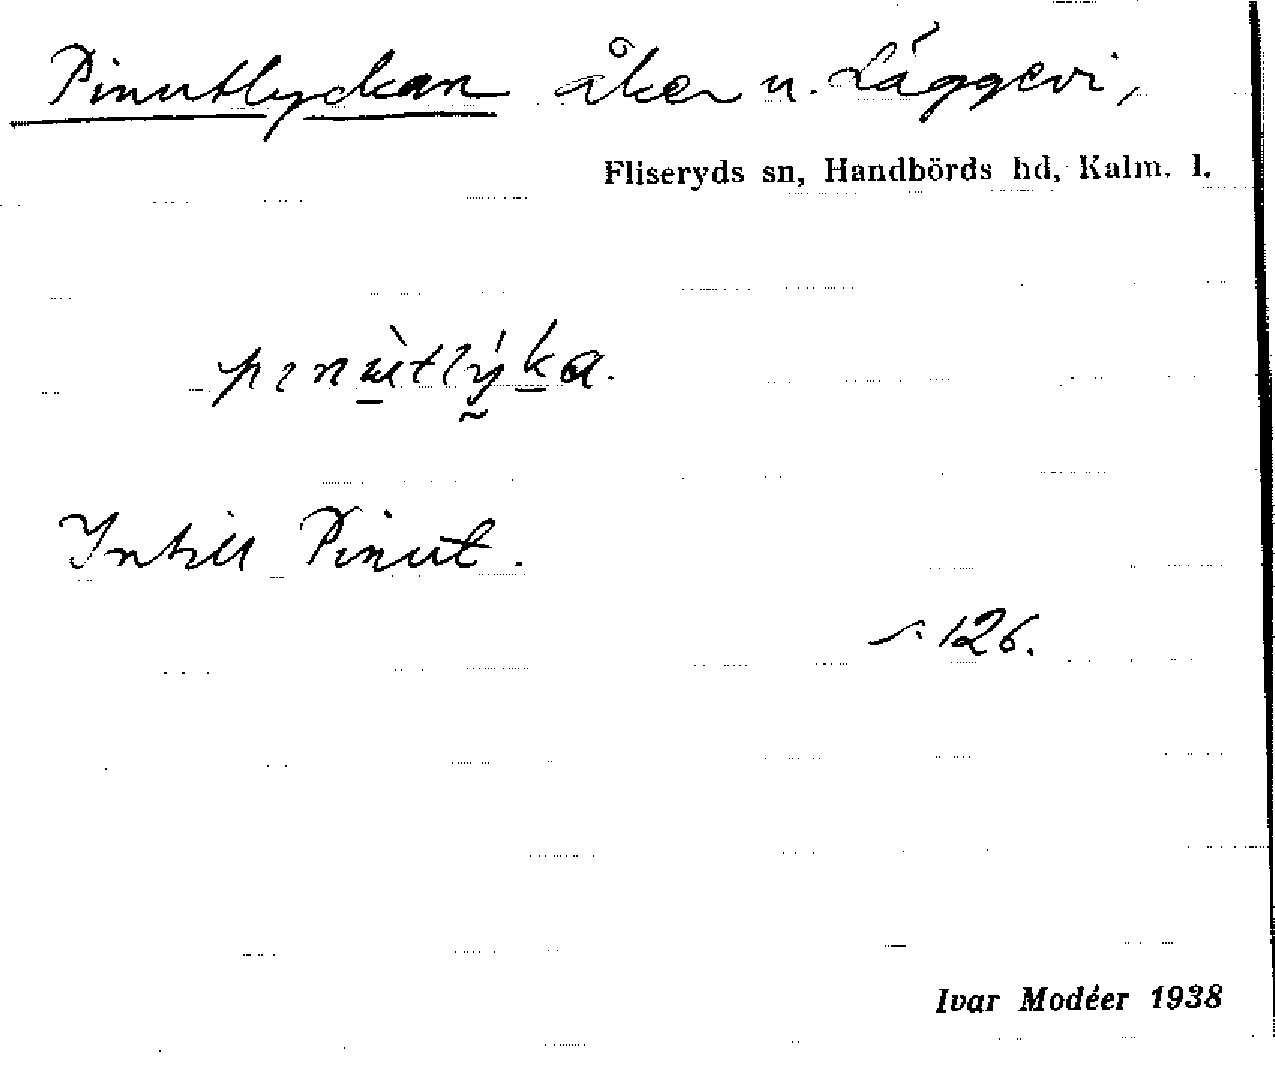 Pinutlyckan åker u. Läggevi,
Fliseryds sn, Handbörds hd, Kalm. l.
pɪnùtlýka.
Intill Pinut.
s. 126.
Ivar Modéer 1938